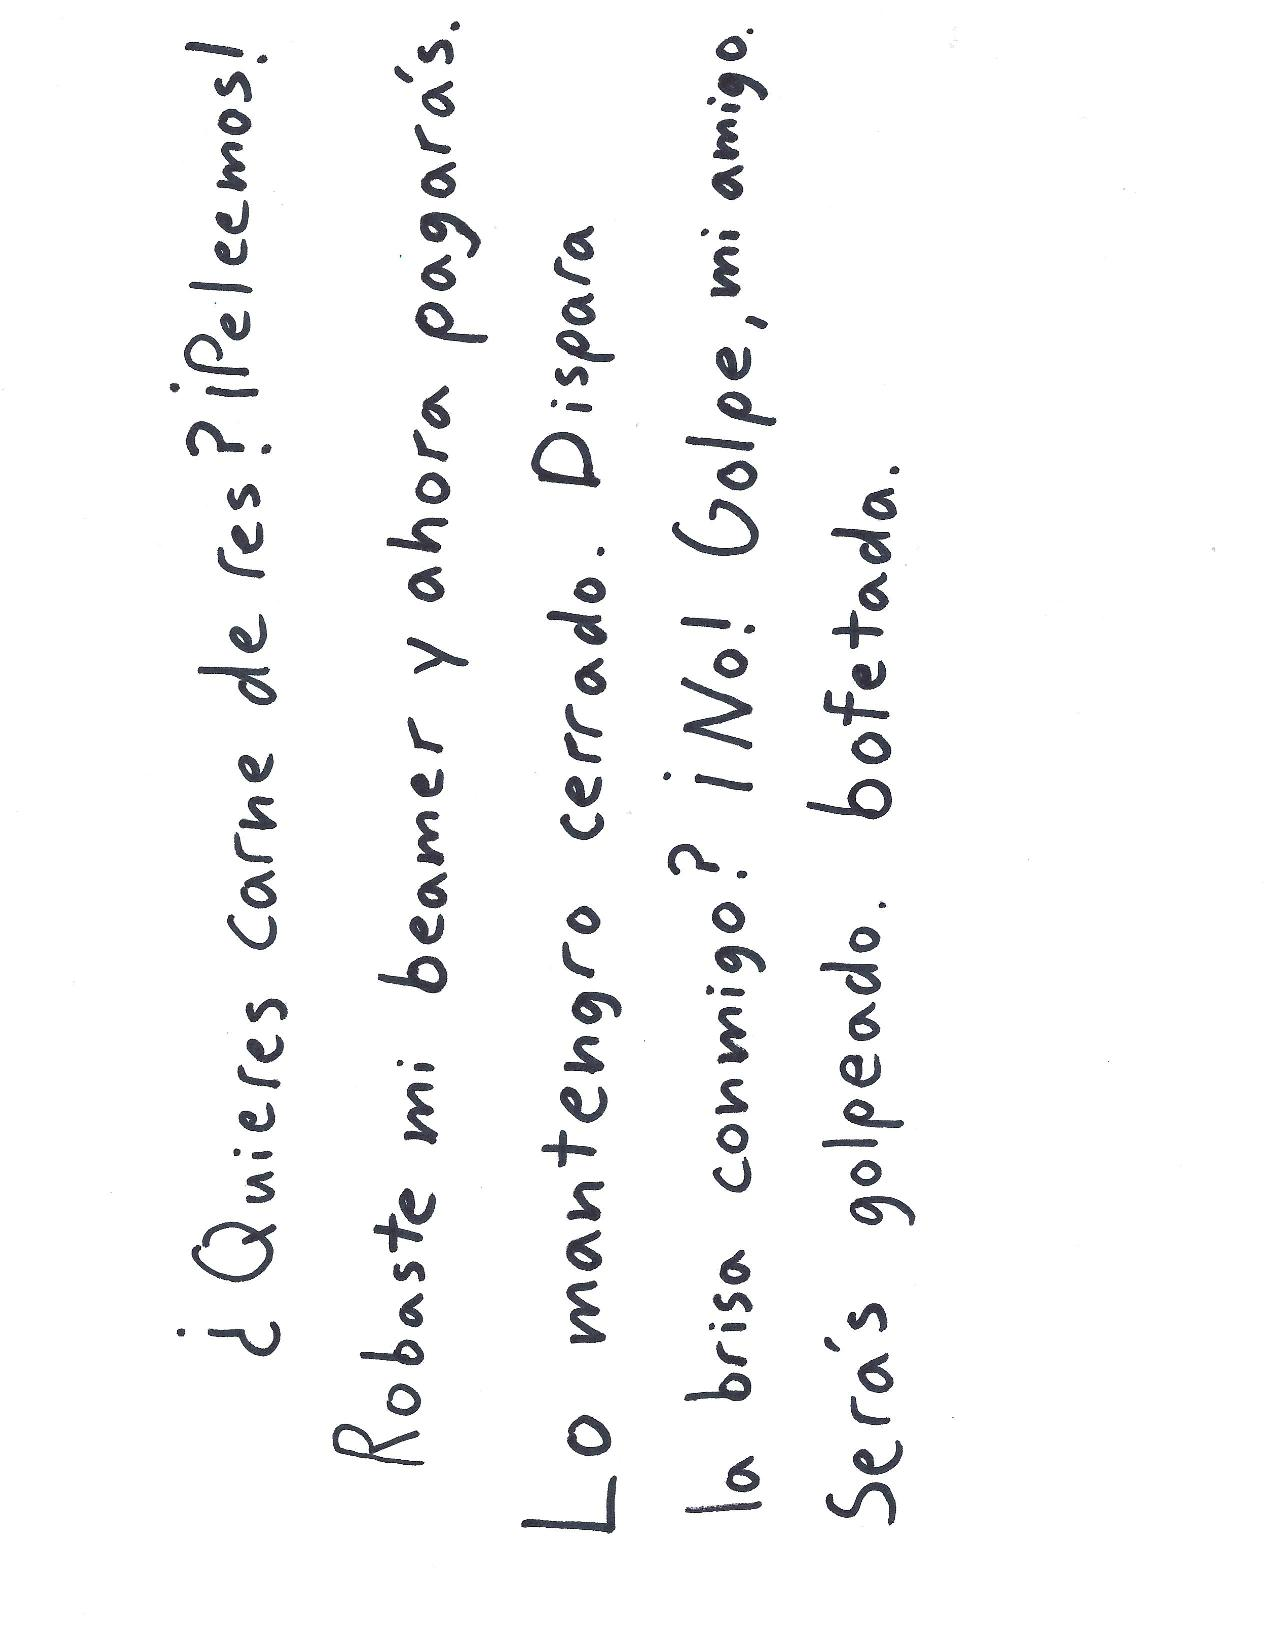 ¿Quieres carne de res? ¡Peleemos!
Robaste mi beamer y ahora pagarás.
Lo mantengro cerrado. Dispara
la brisa conmigo? ¡No! Golpe, mi amigo.
Serás golpeado. bofetada.